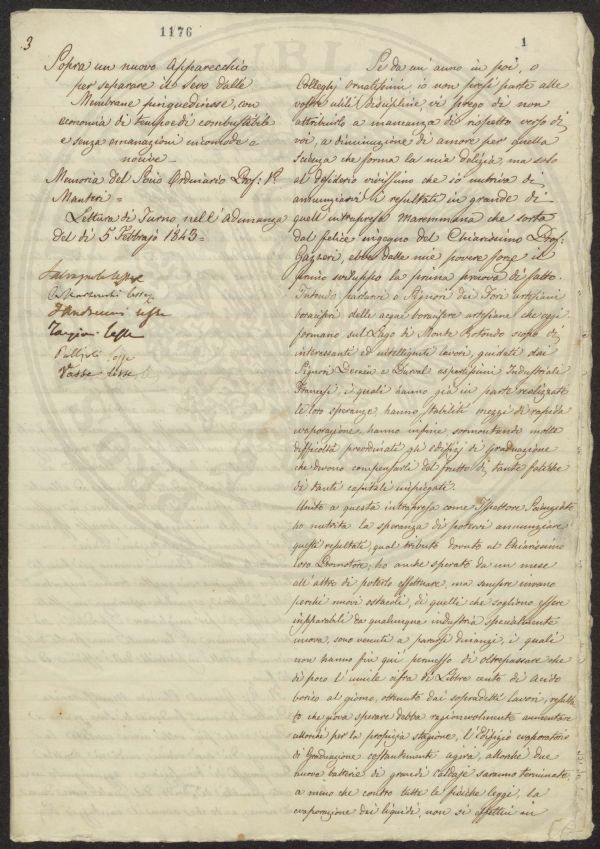 3
1176
1
Sopra un nuovo Apparecchio
per separare il Sevo dalle
Membrane pinguedinose, con
economia di tempo e di combustibile
e senza emanazioni incomode o
nocive
Memoria del Socio Ordinario Prof:
Lettura di Turno nell'Adunanza
del dì 5 Febbrajo 1843=
Se da un'anno in poi, o
Colleghi Ornatissimi, io non presi parte alle
vostre utili Discipline, vi prego di non
attribuirlo a mancanza di rispetto verso di
voi, o a diminuzione di amore per quella
Scienza che forma la mia delizia, ma solo
al desiderio vivissimo che io nutriva di
annunziarvi i resultati in grande di
quell'intrapresa maremmana che sorta
dal felice ingegno del Chiarissimo Prof:
Gazzeri, ebbe dalle mie povere forze il
primo sviluppo la prima prova di fatto.
Intendo parlarvi o Signori dei Fori artesiani
boraciferi delle acque boracifere artesiane che oggi
formano sul Lago di Monte Rotondo scopo di
interessanti ed intelligenti lavori, guidati dai
Signori Decain e Durval espertissimi Industriali
Francesi, i quali hanno già in parte realizzate
le loro speranze, hanno stabiliti mezzi di rapida
evaporazione, hanno infine sormontando molte
difficoltà preordinati gli edifizj di graduazione
che devono compensarli del frutto di tante fatiche
di tanti capitali impiegati.
Unito a questa intrapresa come Ispettore
ho nutrita la speranza di potervi annunziare
questi resultati, qual tributo dovuto al Chiarissimo
loro Promotore; ho anche sperato da un mese
all'altro di poterlo effettuare, ma sempre invano
perchè nuovi ostacoli, di quelli che sogliono essere
inseparabili da qualunque industria specialmente
nuova, sono venuti a pararsi dinanzi, i quali
non hanno fin quì permesso di oltrepassare che
di poco l'umile cifra di Libbre cento di Acido
borico al giorno, ottenuto dai sopradetti lavori,
che giova sperare debba ragionevolmente aumentare
allorchè per la propizia stagione, l'Edifizio evaporatorio
di Graduazione costantemente agirà, allorchè due
nuove batterie di grandi Caldaje saranno terminate,
a meno che contro tutte le fisiche leggi, la
evaporazione dei liquidi, non si effettui in